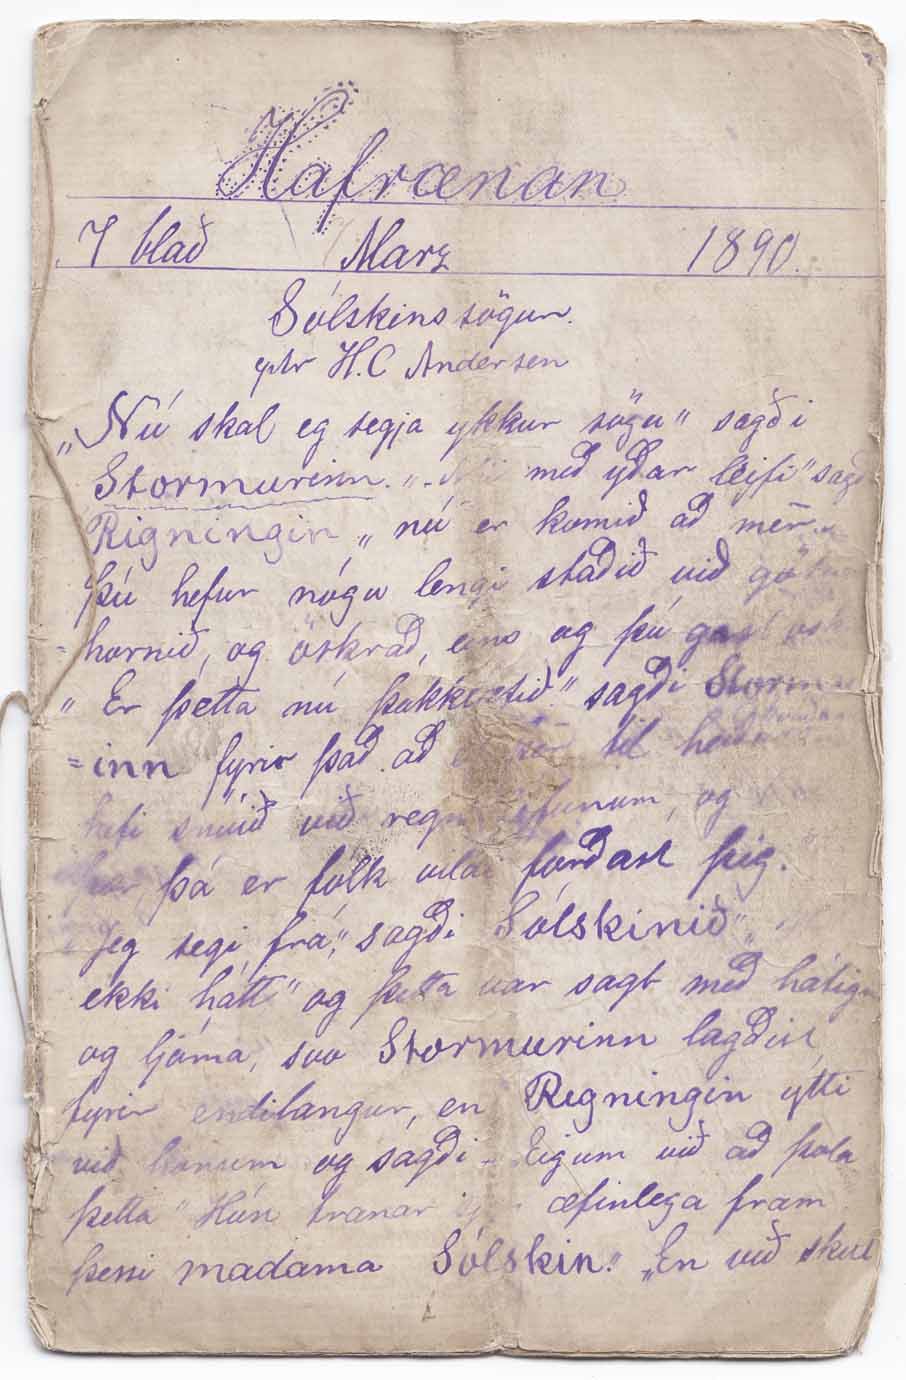 Hafrænan
7 blað Marz 1890.
Sólskins sögur.
eptir H.C Andersen
„Nú skal eg segja ykkur sögu" sagði
Stormurinn. „ með yðar leifi" sagð
Rigningin „nú er komið að mér.
Þú hefur nógu lengi staðið við götu
hornið, og öskrað, eins og þú gast
„Er þetta nú þakklætið." sagði Storm
=inn fyrir það að til
hefi snúið við og
þá er fólk forðast þig.
Jeg segi frá", sagði Sólskinið"
ekki hátt" og þetta var sagt með hátign
og ljóma, svo Stormurinn lagðist
fyrir endilangur, en Rigningin ýtti
við honum og sagði - Eigum við að þola
þetta" Hún tranar æfinlega fram
þessi madama Sólskin." „En við skul